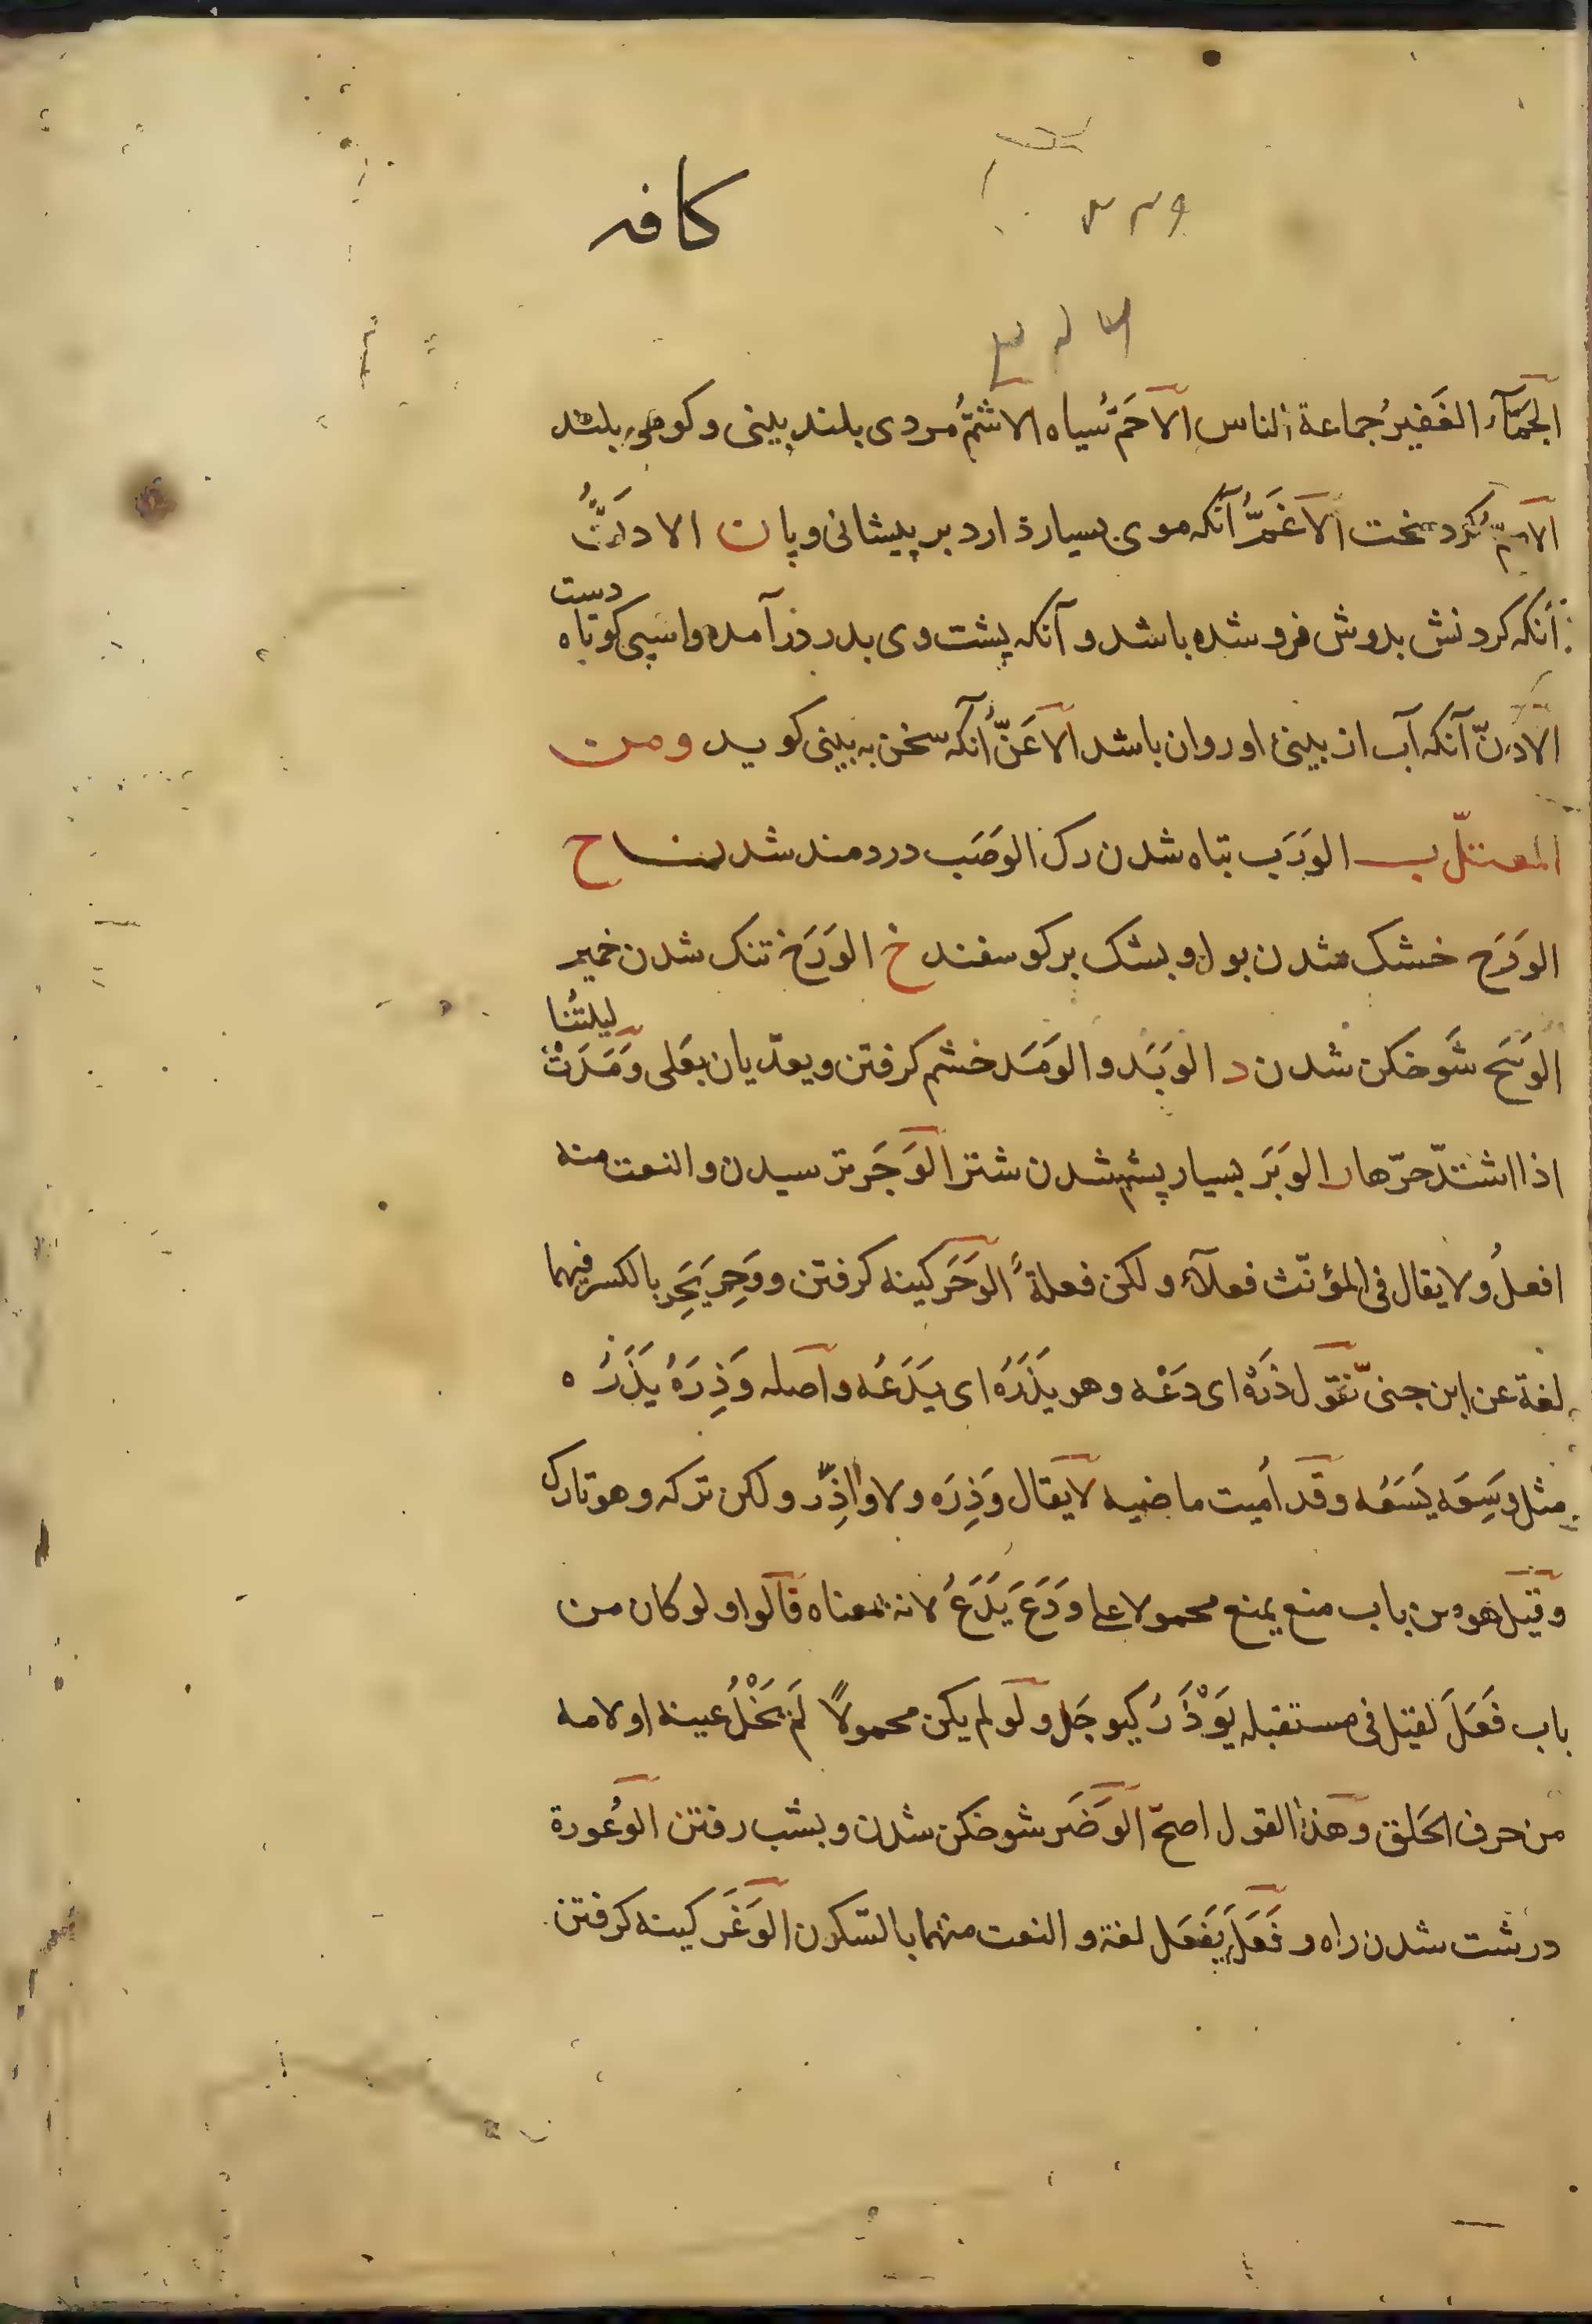 كافه
الجَمّآء الغَفيرُ جماعة الناس الاحَمُّ سياه الاشَمُّ مردى بلند بينى وكوهى بلند
الاصمّ كرد سخت الاغَمُّ آنكه موى بسيار دارد بر پيشانى وپا ن الادَنُّ
آنكه كردنش بدوش فرو شده باشد و آنكه پشت وى بدر در آمده واسپى كوتاه دست
الاذنّ آنكه آب از بينئ او روان باشد الاغَنُّ آنكه سخن به بينى كويد ومن
المعتلّ ب الوَرَب تباه شدن رك الوَصَب دردمند شدن ح
الوَذَح خشك شدن بول و پشك بر كوسفند خ الوَرَخ تنك شدن خمير
الوَسَخ شوخكن شدن د الوَبَد والوَمَد خشم كرفتن ويعدّيان بعَلى وَمَدَتْ ليلتُنا
اذا اشتدّ حرّها ر الوَبَر بسيار پشم شدن شتر الوَجَر ترسيدن والنعت منه
افعلُ ولا يقال فى المؤنّث فعلآء ولكن فعلةٌ الوَحَر كينه كرفتن ووَحِرَ يَحِر بالكسر فيهما
لغة عن ابن جنىّ تقول ذَرْهُ اى دَعْه وهو يَذَرُه اى يَدَعُه واصله وَذِرَهُ يَذَرُه
مثل وَسِعَه يَسَعُه وقد اُميت ماضيه لا يقال وَذِرَه ولا واذِرٌ ولكن تركه وهو تارك
وقيل هو من باب منع يمنع محمولا على وَدَعَ يَدَعُ لانه بمعناه قالوا ولو كان من
باب فَعَلَ لقيل فى مستقبله يَوْذَرُ كيوجَل ولو لم يكن محمولاً لَم يَخْلُ عينه او لامه
من حرف الحَلق وهذا القول اصحّ الوَضَر شوخكن شدن وبشب رفتن الوُعورة
درشت شدن راه وفَعَلَ يَفعَل لغة والنعت منهما بالسّكون الوَغَر كينه كرفتن